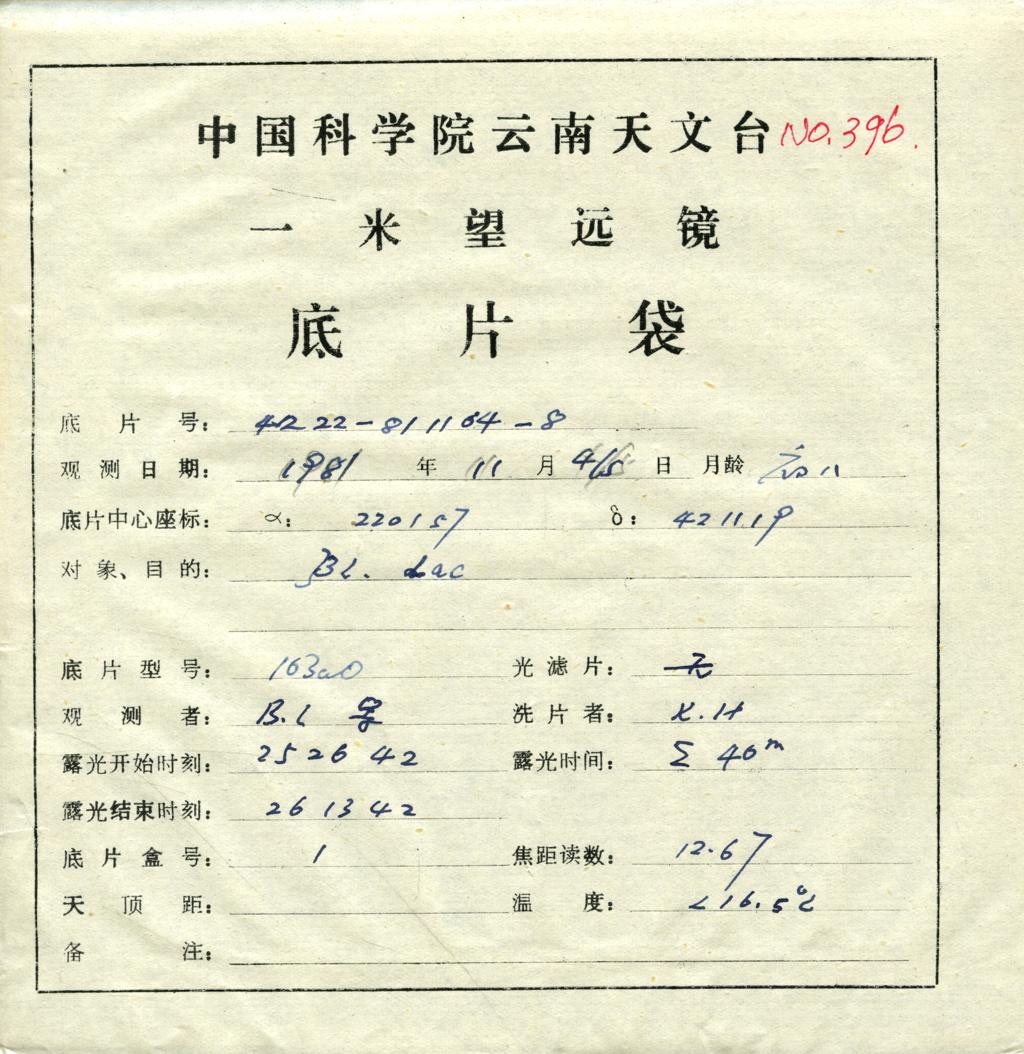 中国科学院云南天文台 No.396.
一米望远镜
底片袋
底片号: 4222-811164-8
观测日期: 1981 年 11 月 4/5 日 月龄 初八
底片中心座标: α: 220157 δ: 421119
对象、目的: BL. Lac
底片型号: 163aO 光滤片: 无
观测者: B.L 洗片者: X.H
露光开始时刻: 252642 露光时间: Σ 40m
露光结束时刻: 261342
底片盒号: 1 焦距读数: 12.67
天顶距: 温度: <16.5°C
备注: